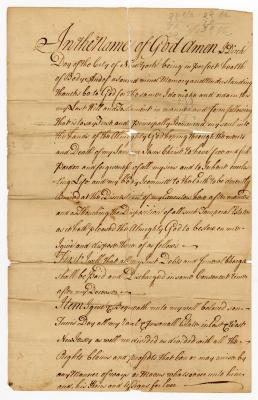 In the Name of God Amen I
Day of the City of New York being in perfect health
of Body and of a sound mind Memory and Understanding
thanks be to God for the same I do
my Last Will and Testament in manner and form following
that is to say first and principally I commend my soul into
the hands of the Almighty God hoping through the merits
and Death of my Saviour Jesus Christ to have free and full
Pardon and forgiveness of all my sins and to Inherit everlas
ting Life and my body I committ to the Earth to be decently
buried at the Discretion of my Executors hereafter named
and as touching the Disposition of all such Temporal Estate
as it hath pleased the Almighty God to bestow on me I
give and dispose thereof as follows
First I will that all my Just Debts and funeral Charges
shall be paid and Discharged in some Convenient time
after my Decease
Item I give & Bequeath unto my well beloved son
Day all my Real & Personall Estate in East &
New Jersey as well un divided as divided with all the
Rights Claims and profits that can or may arise by
any Manner of ways or Means whatsoever unto him
and his Heirs and Assigns for Ever